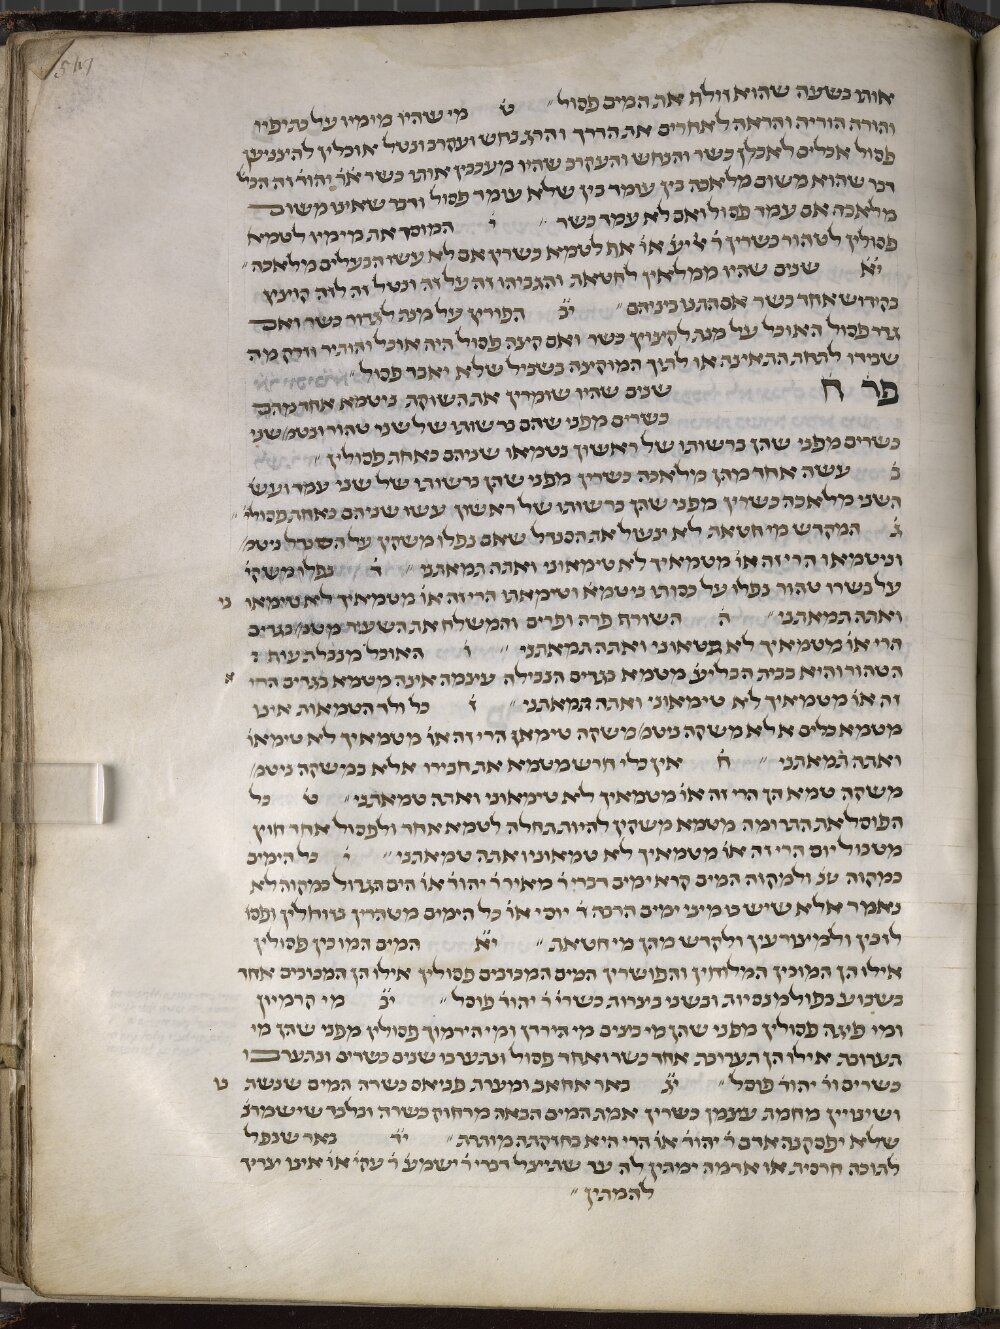 547
אותו כשעה שהוא זולח את המים פסול ״ ט֗ מי שהיו מימיו על כתיפיו
והורה הוריה והראה לאחרים את הדרך והרג נחש ועקרב ונטל אוכלין להיצניען
פסול אכלים לאכלן כשר והנחש והעקרב שהיו מעכבין אותו כשר א֗ר֗ יהוד֗ זה הכל
דבר שהוא משום מלאכה בין עומד בין שלא עומד פסול ודבר שאינו משום
מלאכה אם עמד פסול ואם לא עמד כשר ״ י֗ המוסר את מימיו לטמא
פסולין לטהור כשרין ר֗ ליע֗ או֗ אף לטמא כשרין אם לא עשו הבעלים מלאכה ״
י֗א֗ שנים שהיו ממלאין לחטאת והגביהו זה על זה ונטל זה לזה קויצין
בקידוש אחד כשר אם התנו ביניהם ״ י֗ב֗ הפורץ על מנת לגדור כשר ואם
גדר פסול האוכל על מנת לקיצוץ כשר ואם קיצה פסול היה אוכל והותיר וזרק מה
שבידו לתחת התאינה או לתוך המוקיצה בשביל שלא יאבד פסול ״
פר֗ ח֗ שנים שהיו שומרין את השוקת ניטמא אחד מהם
כשרים מפני שהם ברשותו של שני טהור ונטמ׳ שני
כשרים מפני שהן ברשותו של ראשון נטמאו שניהם כאחת פסולין ״
ב֗ עשה אחד מהן מלאכה כשרין מפני שהן ברשותו של שני עמד ועש׳
השני מלאכה כשרין מפני שהן ברשותו של ראשון עשו שניהם כאחת פסולי׳ ״
ג֗ המקדש מי חטאת לא ינעל את הסנדל שאם נפלו משקין על הסנדל ניטמ׳
וניטמאו הרי זה או֗ מטמאיך לא טימאוני ואתה טמאתני ״ ד֗ נפלו משקי׳
על בשרו טהור נפלו על כסותו ניטמא וטימאתו הרי זה או֗ מטמאיך לא טימאו
ני
ואתה טמאתני ״ ה֗ השורף פרה ופרים והמשלח את השעיר מטמ׳ בגדים
הרי או֗ מטמאיך לא טמאוני ואתה טמאתני ״ ו֗ האוכל מנבלת עוף
הטהור והיא בבית הבליע׳ מטמא בגדים הנבילה עיצמה אינה מטמא בגדים הרי
א
זה או֗ מטמאיך לא טימאוני ואתה טמאתני ״ ז֗ כל ולד הטמאות אינו
מטמא כלים אלא משקה ניטמ׳ משקה טימאן הרי זה או֗ מטמאיך לא טימאו
ואתה טמאתני ״ ח֗ אין כלי חרש מטמא את חבירו אלא במשקה ניטמ׳
משקה טמא הן הרי זה או֗ מטמאיך לא טימאוני ואתה טמאתני ״ ט֗ כל
הפוסל את התרומה מטמא משקין להיות תחלה לטמא אחד ולפסול אחד חוץ
מטבול יום הרי זה או֗ מטמאיך לא טמאוני ואתה טמאתני ״ י֗ כל הימים
כמקוה שנ֗ ולמקוה המים קרא ימים דברי ר֗ מאיר ר֗ יהוד֗ או֗ הים הגדול כמקוה לא
נאמר אלא שיש בו מיני ימים הרבה ר֗ יוסי או֗ כל הימים מטהרין בזוחלין ופסו
לזבין ולמיצורעין ולקדש מהן מי חטאת ״ י֗א֗ המים המוכין פסולין
אילו הן המוכין המלוחין והפושרין המים המכזבים פסולין אילו הן המכזבים אחד
בשבוע בפולמסיות ובשני בצרות כשר ר֗ יהוד֗ פוסל ״ י֗ב֗ מי קרמיון
ומי פיגה פסולין מפני שהן מי ביצים מי הירדן ומי הירמוך פסולין מפני שהן מי
תערובת אילו הן תערובת אחד כשר ואחד פסול ונתערבו שנים כשרים ונתערבו
כשרים ור֗ יהוד֗ פוסל ״ י֗ג֗ באר אחאב ומערת פניאס כשרה המים שנשת
ט
ושינויין מחמת עצמן כשרין אמת המים הבאה מרחוק כשרה ובלבד שישמרנ׳
שלא יפסקנה אדם ר֗ יהוד֗ או֗ הרי היא בחזקתה מותרת ״ י֗ד֗ באר שנפל
לתוכה חרסית או אדמה ימתין לה עד שתיצל דברי ר֗ ישמע֗ ר֗ עקי֗ או֗ אינו צריך
להמתין ״